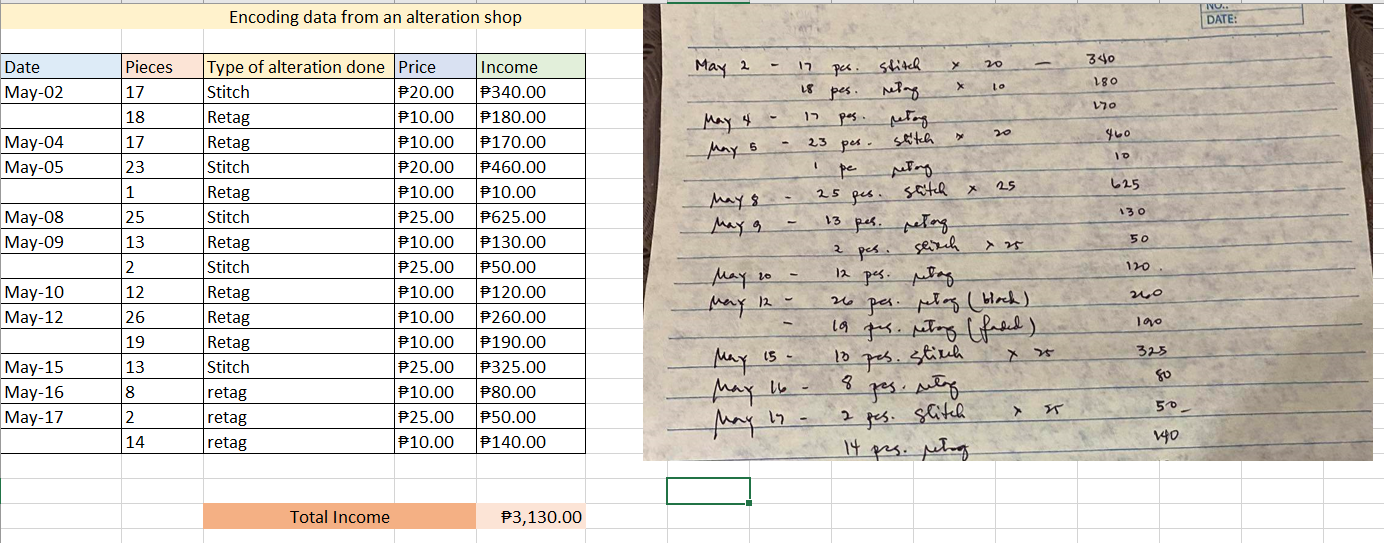 Encoding data from an alteration shop
Date Pieces Type of alteration done Price Income
May-02 17 Stitch ₱20.00 ₱340.00
18 Retag ₱10.00 ₱180.00
May-04 17 Retag ₱10.00 ₱170.00
May-05 23 Stitch ₱20.00 ₱460.00
1 Retag ₱10.00 ₱10.00
May-08 25 Stitch ₱25.00 ₱625.00
May-09 13 Retag ₱10.00 ₱130.00
2 Stitch ₱25.00 ₱50.00
May-10 12 Retag ₱10.00 ₱120.00
May-12 26 Retag ₱10.00 ₱260.00
19 Retag ₱10.00 ₱190.00
May-15 13 Stitch ₱25.00 ₱325.00
May-16 8 retag ₱10.00 ₱80.00
May-17 2 retag ₱25.00 ₱50.00
14 retag ₱10.00 ₱140.00
Total Income ₱3,130.00
DATE:
May 2 - 17 pcs. stitch x 20 — 340
18 pcs. retag x 10 180
May 4 - 17 pcs. retag 170
May 5 - 23 pcs. stitch x 20 460
1 pc retag 10
May 8 - 25 pcs. stitch x 25 625
May 9 - 13 pcs. retag 130
2 pcs. stitch x 25 50
May 10 - 12 pcs. retag 120.
May 12 - 26 pcs. retag (black) 260
- 19 pcs. retag (faded) 190
May 15 - 13 pcs. stitch x 25 325
May 16 - 8 pcs. retag 80
May 17 - 2 pcs. stitch x 25 50
14 pcs. retag 140